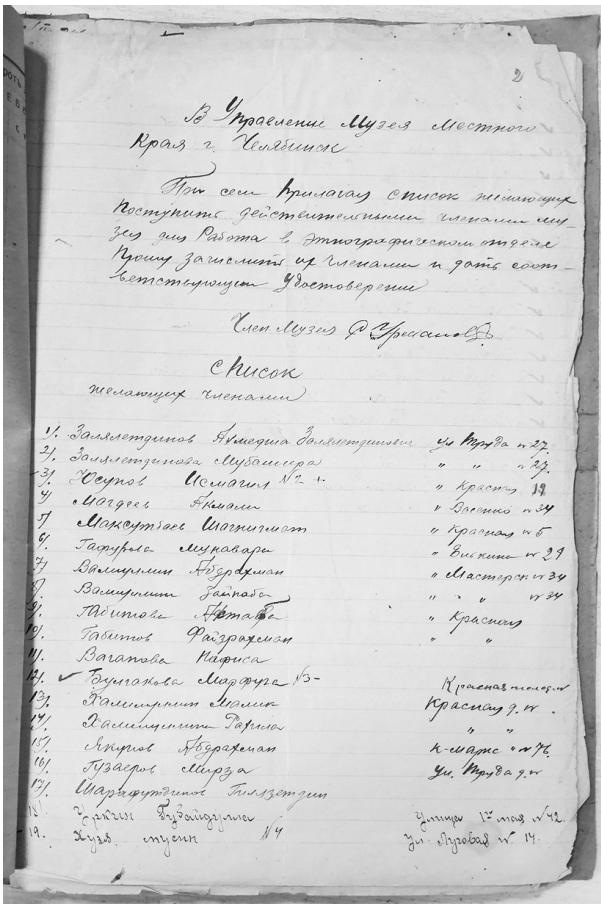 2
В Управление Музея Местного
Края г. Челябинск
При сем прилагая список желающих
поступить действительными членами му-
зея для Работа в этнографическом отделе
Прошу зачислить их членами и дать соот-
ветствующии Удостоверении
Член Музея
список
желающих членами
1). Залялетдинов Ахмедша Залялетдинович ул Труда № 27.
2). Залялетдинова Мубашира " " " 27.
3). Юсупов Исмагил №2 " Красная 19
4) Магдеев Акмали " Васенко № 34
5) Максутбаев Шагингмат " Красная № 5
6). Гафурова Мунавара " Елькина № 29
7). Валиуллин Абдрахман " Мастерск № 34
8). Валиуллина Зайнаба " " № 34
9). Габитова " Красная
10). Габитов Файзрахман " "
11). Вагапова Нафиса
12). ✓ Булгакова Марфуга №3- Красная площад
13). Халиуллин Малик Красная д. №
14). Халиуллина Рахила " "
15). Якупов Абдрахман К-маркс " № 76.
16). Гузаеров Мирза ул. Труда д. №
17). Шарафутдинов Гилязетдин
18). Уркин Губайдулла Улица 1го мая № 42.
19. Хузя мусин №4 ул. Луговая № 14.